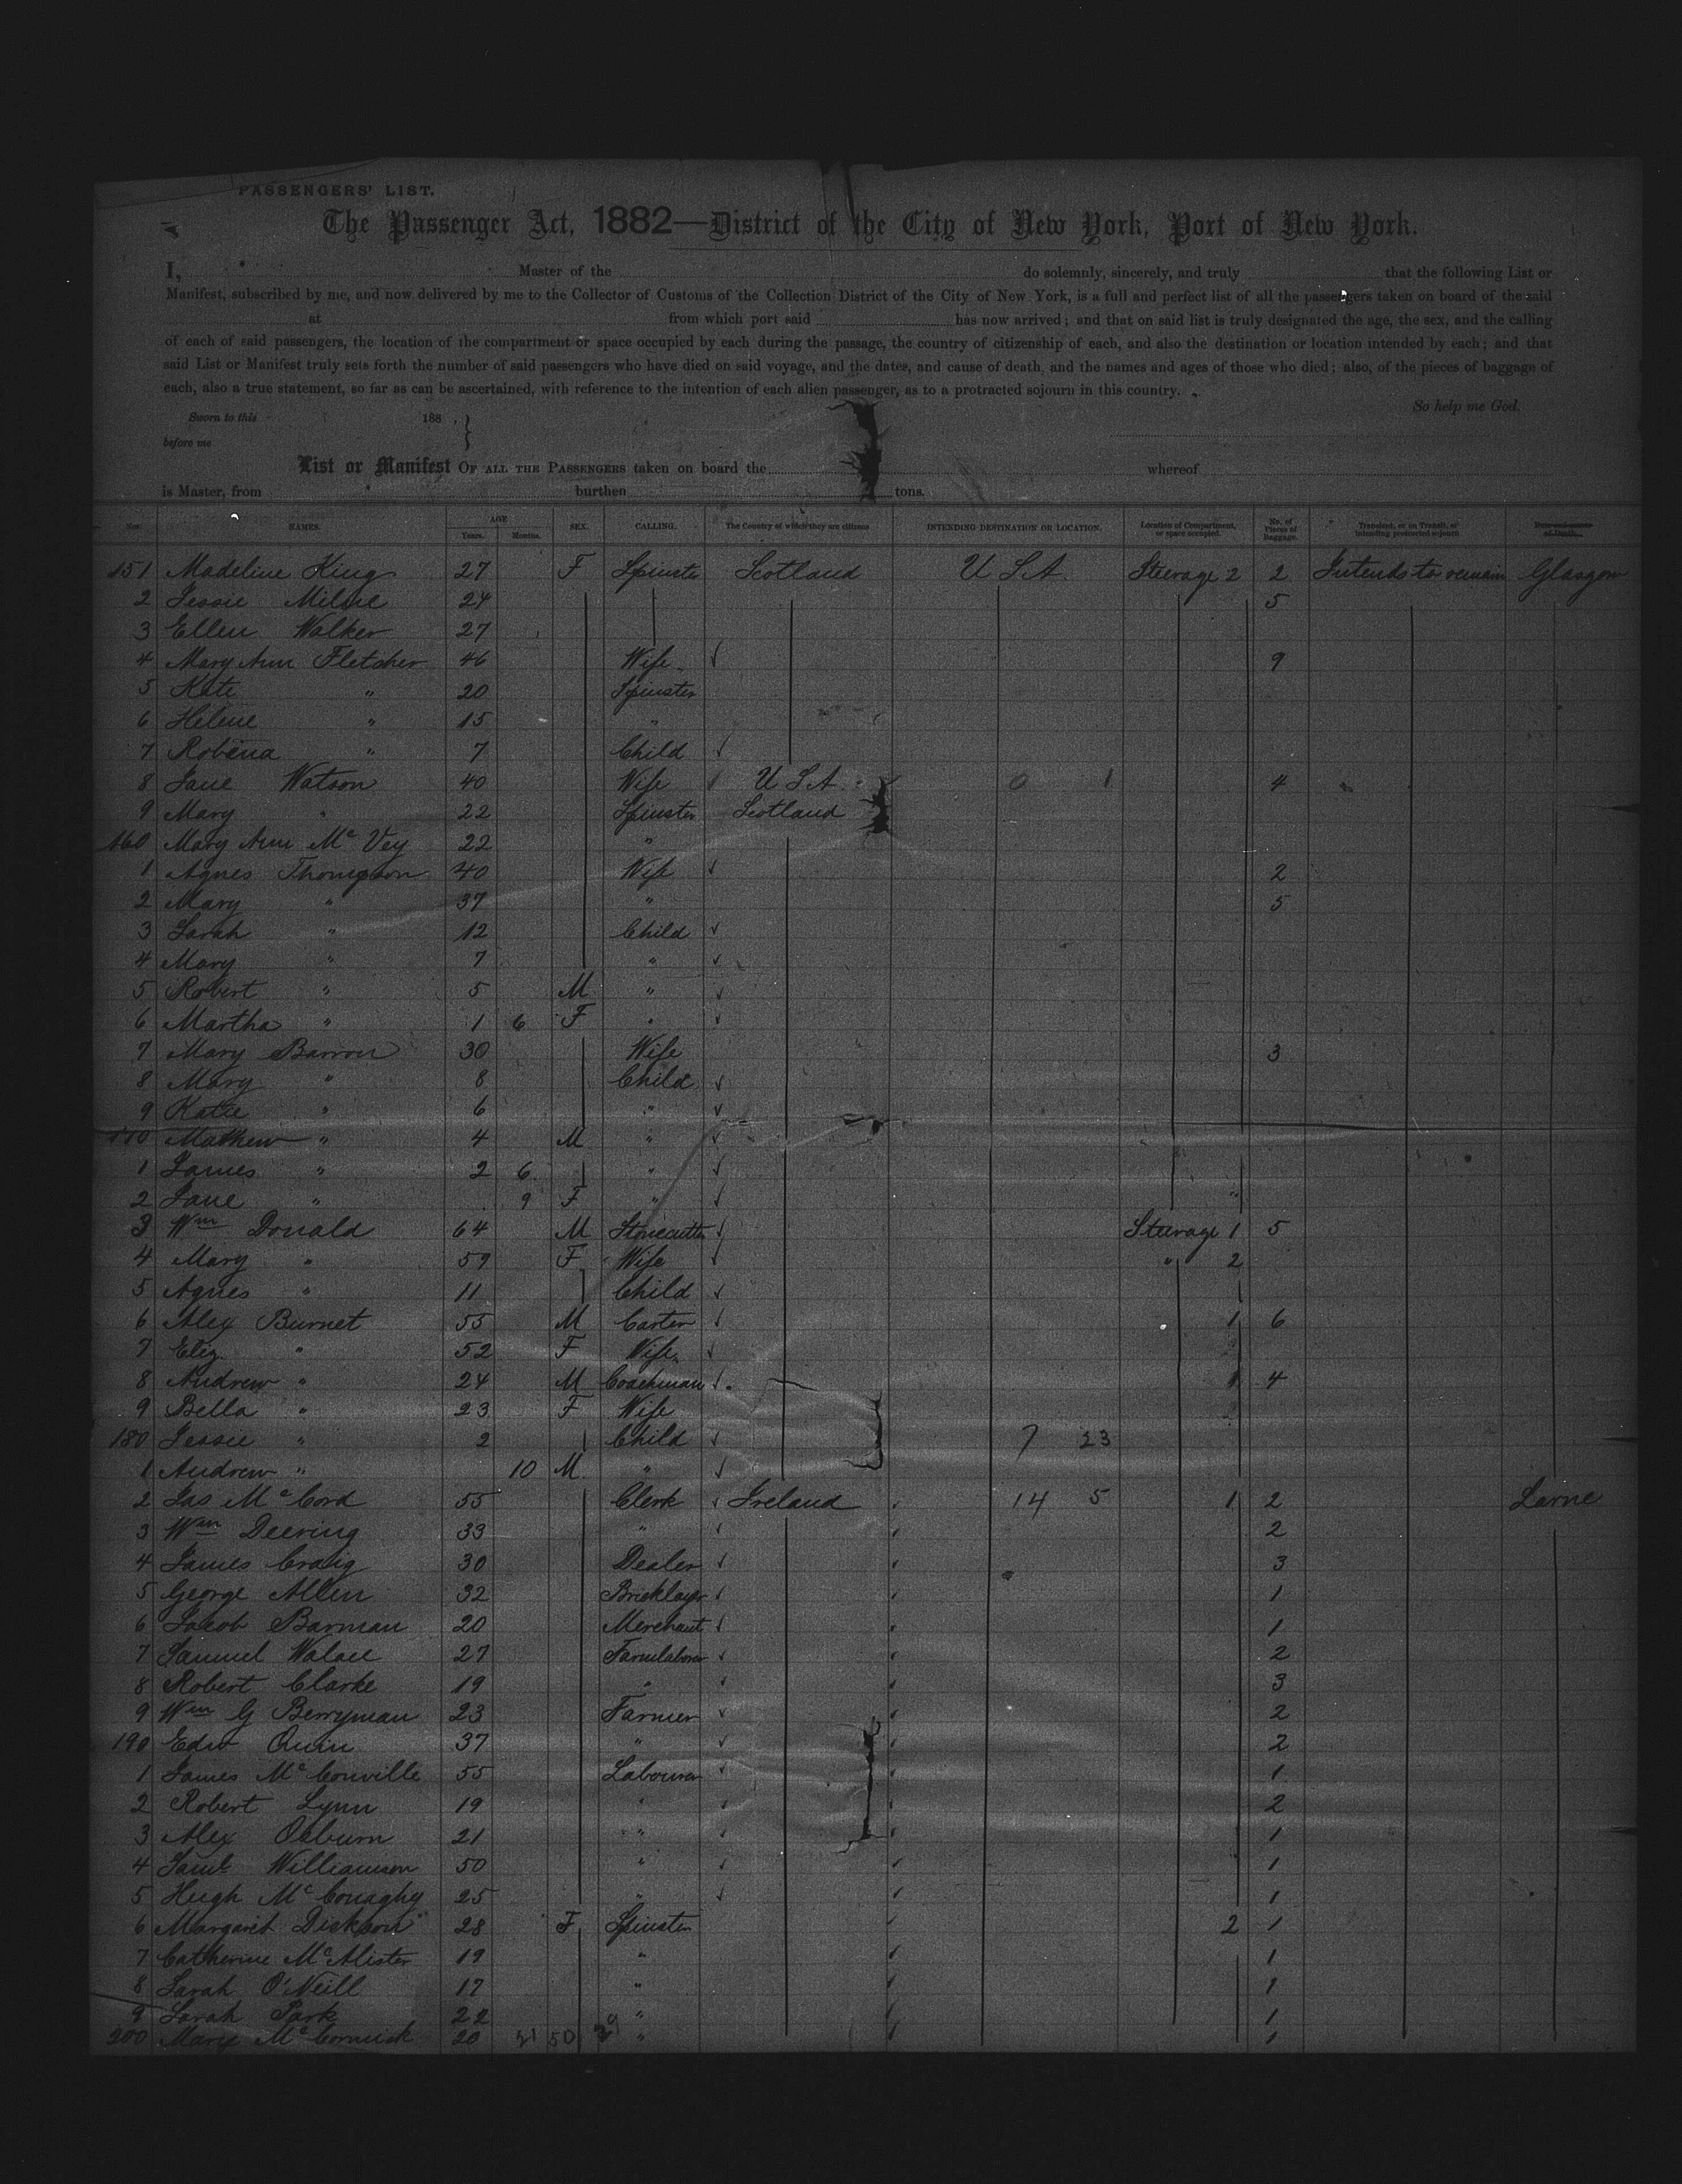 PASSENGERS' LIST.
The Passenger Act, 1882—District of the City of New York, Port of New York.
I, Master of the do solemnly, sincerely, and truly that the following List or
Manifest, subscribed by me, and now delivered by me to the Collector of Customs of the Collection District of the City of New York, is a full and perfect list of all the passengers taken on board of the said
at from which port said has now arrived; and that on said list is truly designated the age, the sex, and the calling
of each of said passengers, the location of the compartment or space occupied by each during the passage, the country of citizenship of each, and also the destination or location intended by each; and that
said List or Manifest truly sets forth the number of said passengers who have died on said voyage, and the dates, and cause of death, and the names and ages of those who died; also, of the pieces of baggage of
each, also a true statement, so far as can be ascertained, with reference to the intention of each alien passenger, as to a protracted sojourn in this country.
So help me God.
Sworn to this 188
before me
List or Manifest OF ALL THE PASSENGERS taken on board the whereof
is Master, from burthen tons.
Nos. NAMES. AGE Years. Months. SEX. CALLING. The Country of which they are citizens INTENDING DESTINATION OR LOCATION. Location of Compartment, or space occupied. No. of Pieces of Baggage. Transient, or on Transit, or intending protracted sojourn of Death.
151 Madeline King 27 F Spinster Scotland U S A. Steerage 2 2 Intends to remain Glasgow
2 Jessie Milne 24 5
3 Ellen Walker 27
4 Mary Ann Fletcher 46 Wife 9
5 Kate " 20 Spinster
6 Helene " 15 "
7 Robena " 7 Child
8 Jane Watson 40 Wife U S A 0 1 4
9 Mary " 22 Spinster Scotland
160 Mary Ann Mc Vey 22 "
1 Agnes Thompson 40 Wife 2
2 Mary " 37 " 5
3 Sarah " 12 Child
4 Mary " 7 "
5 Robert " 5 M "
6 Martha " 1 6 F "
7 Mary Barron 30 Wife 3
8 Mary " 8 Child
9 Katie " 6 "
170 Mathew " 4 M "
1 James " 2 6 "
2 Jane " 9 F " "
3 Wm Donald 64 M Stonecutter Steerage 1 5
4 Mary " 59 F Wife " 2
5 Agnes " 11 Child
6 Alex Burnet 55 M Carter 1 6
7 Eliz " 52 F Wife
8 Andrew " 24 M Coachman 1 4
9 Bella " 23 F Wife
180 Jessie " 2 Child 7 23
1 Andrew " 10 M "
2 Jas McCord 55 Clerk Ireland 14 5 1 2 Larne
3 Wm Deering 33 " 2
4 James Craig 30 Dealer 3
5 George Allen 32 Bricklayer 1
6 Jacob Barman 20 Merchant 1
7 Samuel Walace 27 Farmlaborer 2
8 Robert Clarke 19 " 3
9 Wm G Berryman 23 Farmer 2
190 Edw Quin 37 " 2
1 James McConville 55 Labourer 1
2 Robert Lynn 19 " 2
3 Alex Osburn 21 " 1
4 Saml Williamson 50 " 1
5 Hugh McConaghy 25 " 1
6 Margaret 28 F Spinster 2 1
7 Catherine McAlister 19 " 1
8 Sarah O'Neill 17 " 1
9 Sarah Park 22 " 1
200 Mary McCormick 20 21 50 29 " 1